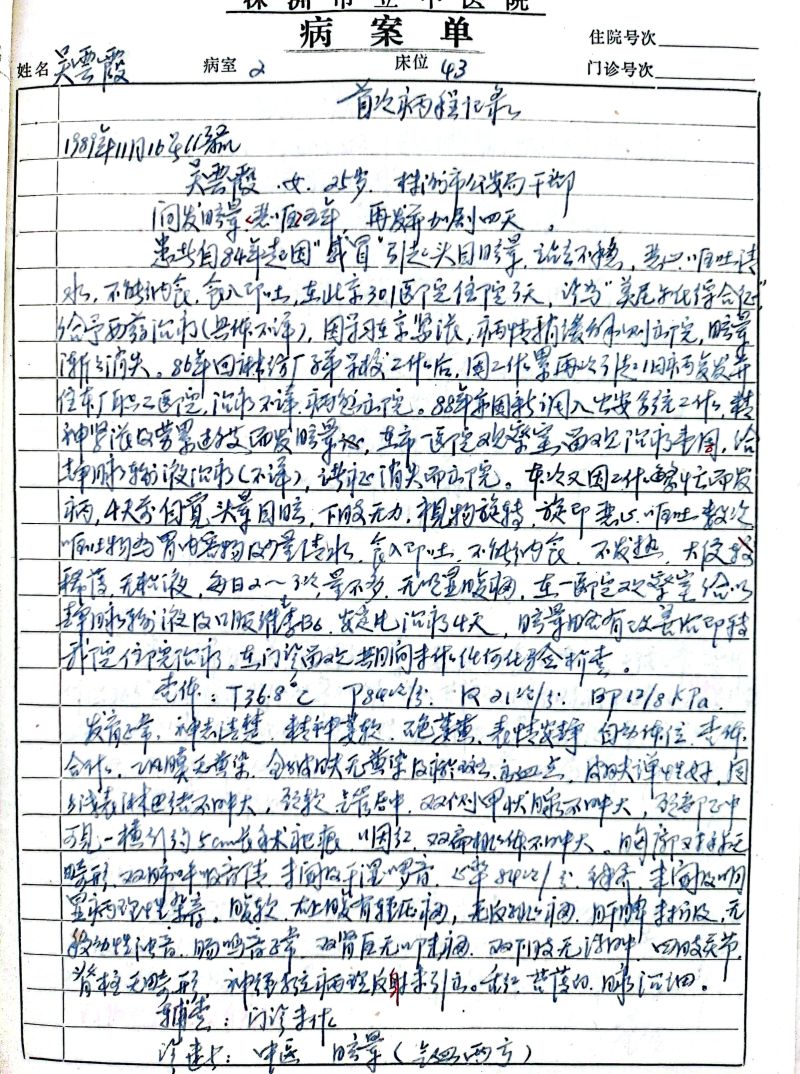 株洲市立中医院
病案单
住院号次
姓名 吴雲霞 病室 2 床位 43 门诊号次
首次病程记录
1989年11月16号
吴雲霞 女、25岁、株洲市公安局干部
间发眩晕、恶呕五年,再发并加剧四天。
患者自84年起因"感冒"引起头目眩晕,站立不稳,恶心呕吐清
水,不能纳食,食入即吐,在北京301医院住院 天,诊为"美尼尔氏综合征"
给予西药治疗(具体不详),因学习在京紧张,病情稍缓解 出院,眩晕
渐渐消失。86年回 厂子弟学校工作后,因工作累再次引起旧病复发并
住本厂职工医院,治疗不详,病愈出院。88年亦因新调入公安系统工作,精
神紧张及劳累过 而发眩晕,在市一医院观察室留观治疗 周,给
静脉输液治疗(不详),诸症消失而出院。本次又因工作 而发
病,4天前自觉头晕目眩,下肢无力,视物旋转,旋即恶心呕吐数次
呕吐物为胃内容物及少量清水,食入即吐,不能纳食,不发热,大便较
稀薄,无粘液,每日2~3次,量不多,无明显腹痛,在一医院观察室给以
静脉输液及口服维素B6、安定片治疗4天,眩晕略有改善后即转
我院住院治疗,在门诊留观其间未作任何化验检查。
查体:T36.8℃ P84次/分 R21次/分 BP12/8KPa
发育正常,神志清楚,精神萎软,面色萎黄,表情安静,自动体位,查体
合作,巩膜无黄染,全身皮肤无黄染及瘀斑、出血点,皮肤弹性好,周
身浅表淋巴结不肿大,颈软,气管居中,双侧甲状腺不肿大,颈部正中
可见一横行约5cm长手术疤痕,咽红,双扁桃体不肿大。胸廓对称无
畸形,双肺呼吸音清,未闻及干湿啰音,心率84次/分,律齐,未闻及明
显病理性杂音。腹软,右上腹有轻压痛,无反跳痛,肝脾未扪及,无
移动性浊音,肠鸣音正常,双肾区无叩击痛,双下肢无浮肿,四肢关节、
脊柱无畸形,神经系统病理反射未引出。舌红,苔薄白,脉沉细。
辅查:门诊未作
诊断:中医 眩晕(气血两亏)